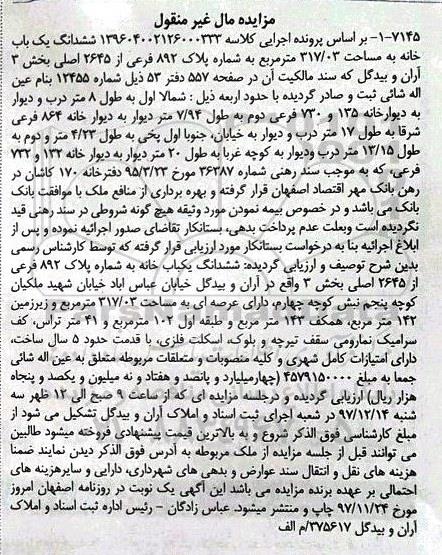 مزایده مال غیر منقول
۷۱۴۵-۱- بر اساس پرونده اجرایی کلاسه ۱۳۹۶۰۴۰۰۲۱۲۶۰۰۰۳۳۳ ششدانگ یک باب
خانه به مساحت ۳۱۷/۰۳ مترمربع به شماره پلاک ۸۹۲ فرعی از ۲۶۴۵ اصلی بخش ۳
آران و بیدگل که سند مالکیت آن در صفحه ۵۵۷ دفتر ۵۳ ذیل شماره ۱۲۴۵۵ بنام عین
اله شائی ثبت و صادر گردیده با حدود اربعه ذیل : شمالا اول به طول ۸ متر درب و دیوار
به دیوارخانه ۱۳۵ و ۷۳۰ فرعی دوم به طول ۷/۹۴ متر دیوار به دیوار خانه ۸۶۴ فرعی
شرقا به طول ۱۷ متر درب و دیوار به خیابان، جنوبا اول پخی به طول ۴/۲۳ متر و دوم به
طول ۱۳/۱۵ متر درب ودیوار به کوچه غربا به طول ۲۰ متر دیوار به دیوار خانه ۱۳۲ و ۷۳۲
فرعی، که به موجب سند رهنی شماره ۳۶۳۸۷ مورخ ۹۵/۳/۲۳ دفترخانه ۱۷۰ کاشان در
رهن بانک مهر اقتصاد اصفهان قرار گرفته و بهره برداری از منافع ملک با موافقت بانک
بانک می باشد و در خصوص بیمه نمودن مورد وثیقه هیچ گونه شروطی در سند رهنی قید
نگردیده است وبعلت عدم پرداخت بدهی، بستانکار تقاضای صدور اجرائیه نموده و پس از
ابلاغ اجرائیه بنا به درخواست بستانکار مورد ارزیابی قرار گرفته که توسط کارشناس رسمی
بدین شرح توصیف و ارزیابی گردیده: ششدانگ یکباب خانه به شماره پلاک ۸۹۲ فرعی
از ۲۶۴۵ اصلی بخش ۳ واقع در آران و بیدگل خیابان عباس اباد خیابان شهید ملکیان
کوچه پنجم نبش کوچه چهارم، دارای عرصه ای به مساحت ۳۱۷/۰۳ مترمربع و زیرزمین
۱۴۲ متر مربع، همکف ۱۴۳ متر مربع و طبقه اول ۱۰۲ مترمربع و ۴۱ متر تراس، کف
سرامیک نمارومی سقف تیرچه و بلوک، اسکلت فلزی، با قدمت حدود ۵ سال ساخت،
دارای امتیازات کامل شهری و کلیه منصوبات و متعلقات مربوطه متعلق به عین اله شائی
جمعا به مبلغ ۴۵۷۹۱۵۰۰۰۰ (چهارمیلیارد و پانصد و هفتاد و نه میلیون و یکصد و پنجاه
هزار ریال) ارزیابی گردیده و درجلسه مزایده ای که از ساعت ۹ صبح الی ۱۲ ظهر سه
شنبه ۹۷/۱۲/۱۴ در شعبه اجرای ثبت اسناد و املاک آران و بیدگل تشکیل می شود از
مبلغ کارشناسی فوق الذکر شروع و به بالاترین قیمت پیشنهادی فروخته میشود طالبین
می توانند قبل از جلسه مزایده از ملک مربوطه به آدرس فوق الذکر دیدن نمایند ضمنا
هزینه های نقل و انتقال سند عوارض و بدهی های شهرداری، دارایی و سایرهزینه های
احتمالی بر عهده برنده مزایده می باشد این آگهی یک نوبت در روزنامه اصفهان امروز
مورخ ۹۷/۱۱/۲۴ چاپ و منتشر میشود. عباس زادگان - رئیس اداره ثبت اسناد و املاک
آران و بیدگل ۳۷۵۶۱۷/م الف